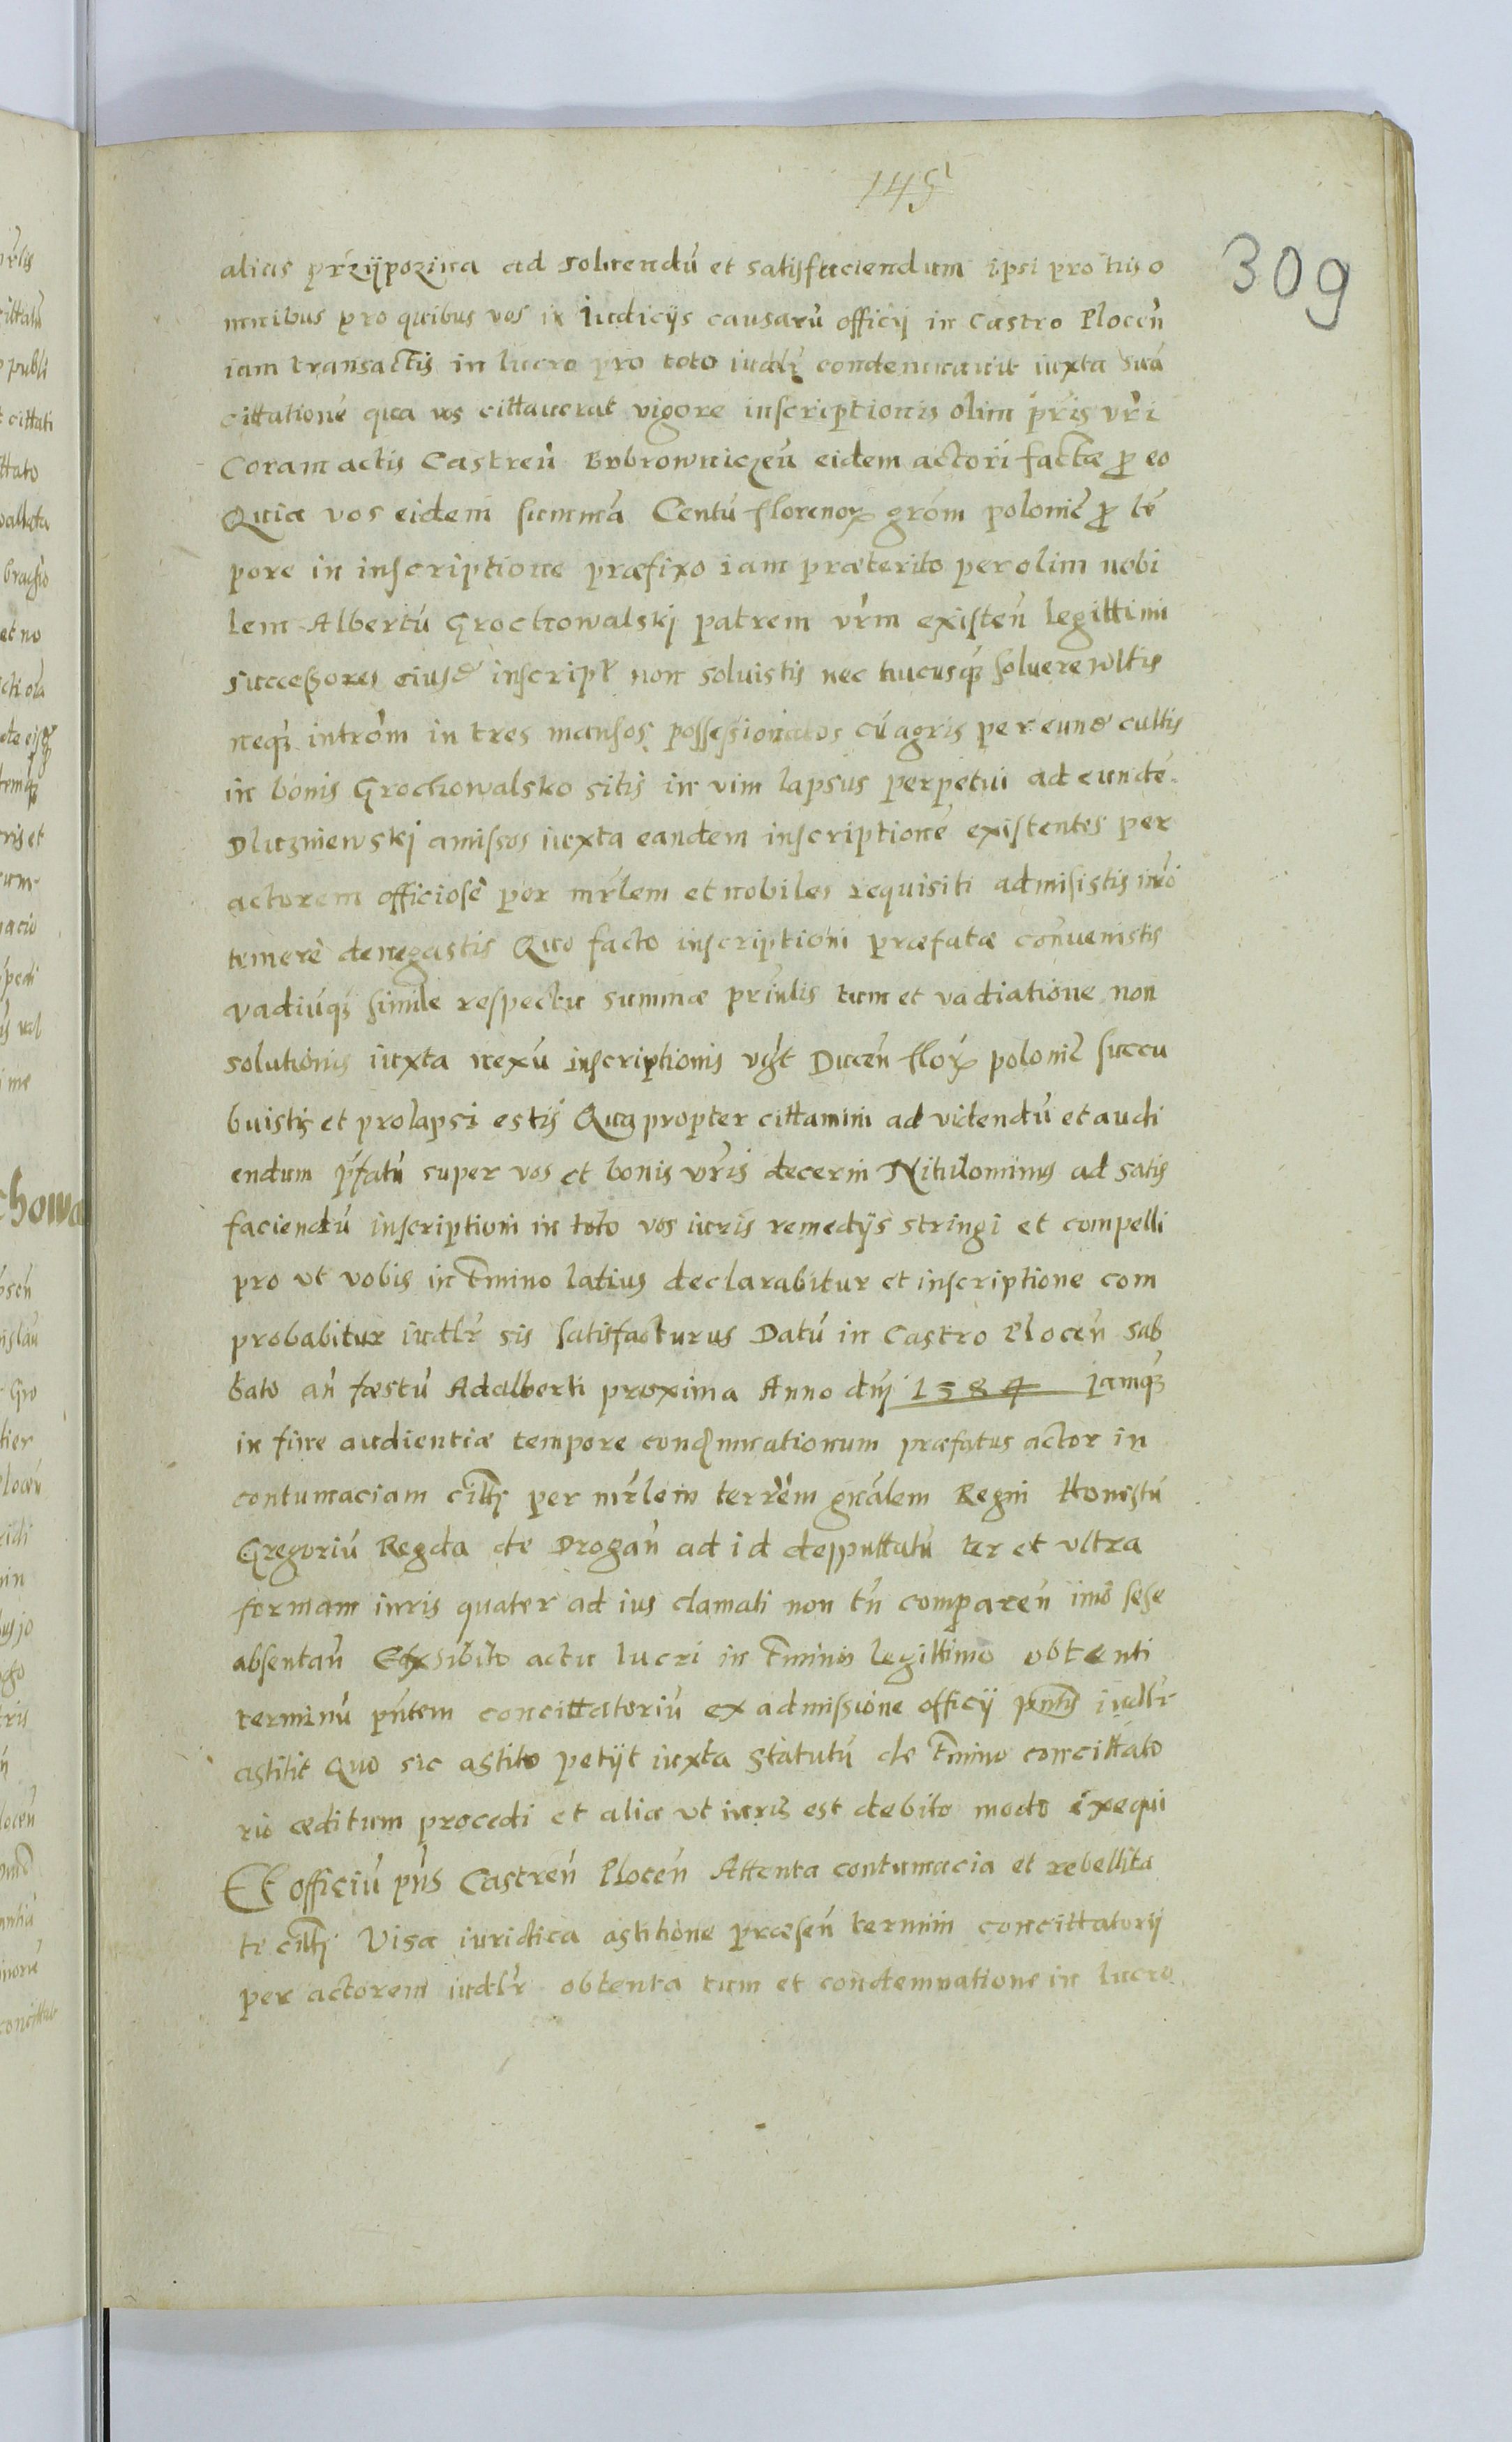 145
309
alias przÿpozwa ad soluendũ et satisfaciendum ipsi pro his o
mnibus pro quibus vos in Iudicijs causarũ officij in Castro Plocen̄
iam transactis in lucro pro toto iudlr̃ condemnauit iuxta suã
cittationẽ qua vos cittauerat vigore inscriptionis olim pr̃is vr̃i
Coram actis Castren̄ Bobrowniczen̄ eidem actori factæ ꝓ eo
Quia vos eidem summã Centũ florenoꝝ grõm polonic̃ ꝓ tẽ
pore in inscriptione præfixo iam præterito per olim nobi
lem Albertũ Grochowalskj patrem vr̃m existen̄ legittimi
successores eiusd̃ inscript̃ non soluistis nec hucusqꝫ soluere wltis
neqꝫ intrõm in tres mansos possessionatos cũ agris per eund̃ cultis
in bonis Grochowalsko sitis in vim lapsus perpetui ad eundẽ
Dluzniewskj amissos iuxta eandem inscriptionẽ existentes per
actorem officiosè per mr̃lem et nobiles requisiti admisistis imò
temerè denegastis Quo facto inscriptioni præfatæ conuenistis
vadiũqꝫ simile respectu summæ prin̄lis tum et vadiatione non
solutionis iuxta nexũ inscriptionis vgt̃ Ducen̄ floꝝ polonic̃ succu
buistis et prolapsi estis Qua propter cittamini ad videndũ et audi
endum p̃fatũ super vos et bonis vr̃is decerni Nihilominus ad satis
faciendũ inscriptioni in toto vos iuris remedÿs stringi et compelli
pro vt vobis in Tm̃ino latius declarabitur et inscriptione com
probabitur iudlr̃ sis satisfacturus Datũ in Castro Plocen̄ sab
bato an̄ fæstũ Adalberti proxima Anno dn̄j 1584 iamqꝫ
in fine audientiæ tempore cond̃mnationum præfatus actor in
contumaciam citt̃ per mr̃lem terrẽm gnãlem Regni Honistũ
Gregoriũ Regda de Drogan̄ ad id depputtatũ ter et vltra
formam iuris quater ad ius clamati non tn̄ comparen̄ imò sese
absentan̄ Exhibito actu lucri in Tm̃ino legittimo obtenti
terminũ pn̄tem concittatoriũ ex admissione officij pn̄tis iudlr̃
astitit Quo sic astito petÿt iuxta statutũ de Tm̃ino concittato
rio æditum procedi et alia vt iuris est debito modo exequi
Et officiũ pn̄s Castren̄ Plocen̄ Attenta contumacia et rebellita
te citt̃ Visa iuridica astitione præsen̄ termini concittatorij
per actorem iudlr̃ obtenta tum et condemnatione in lucro